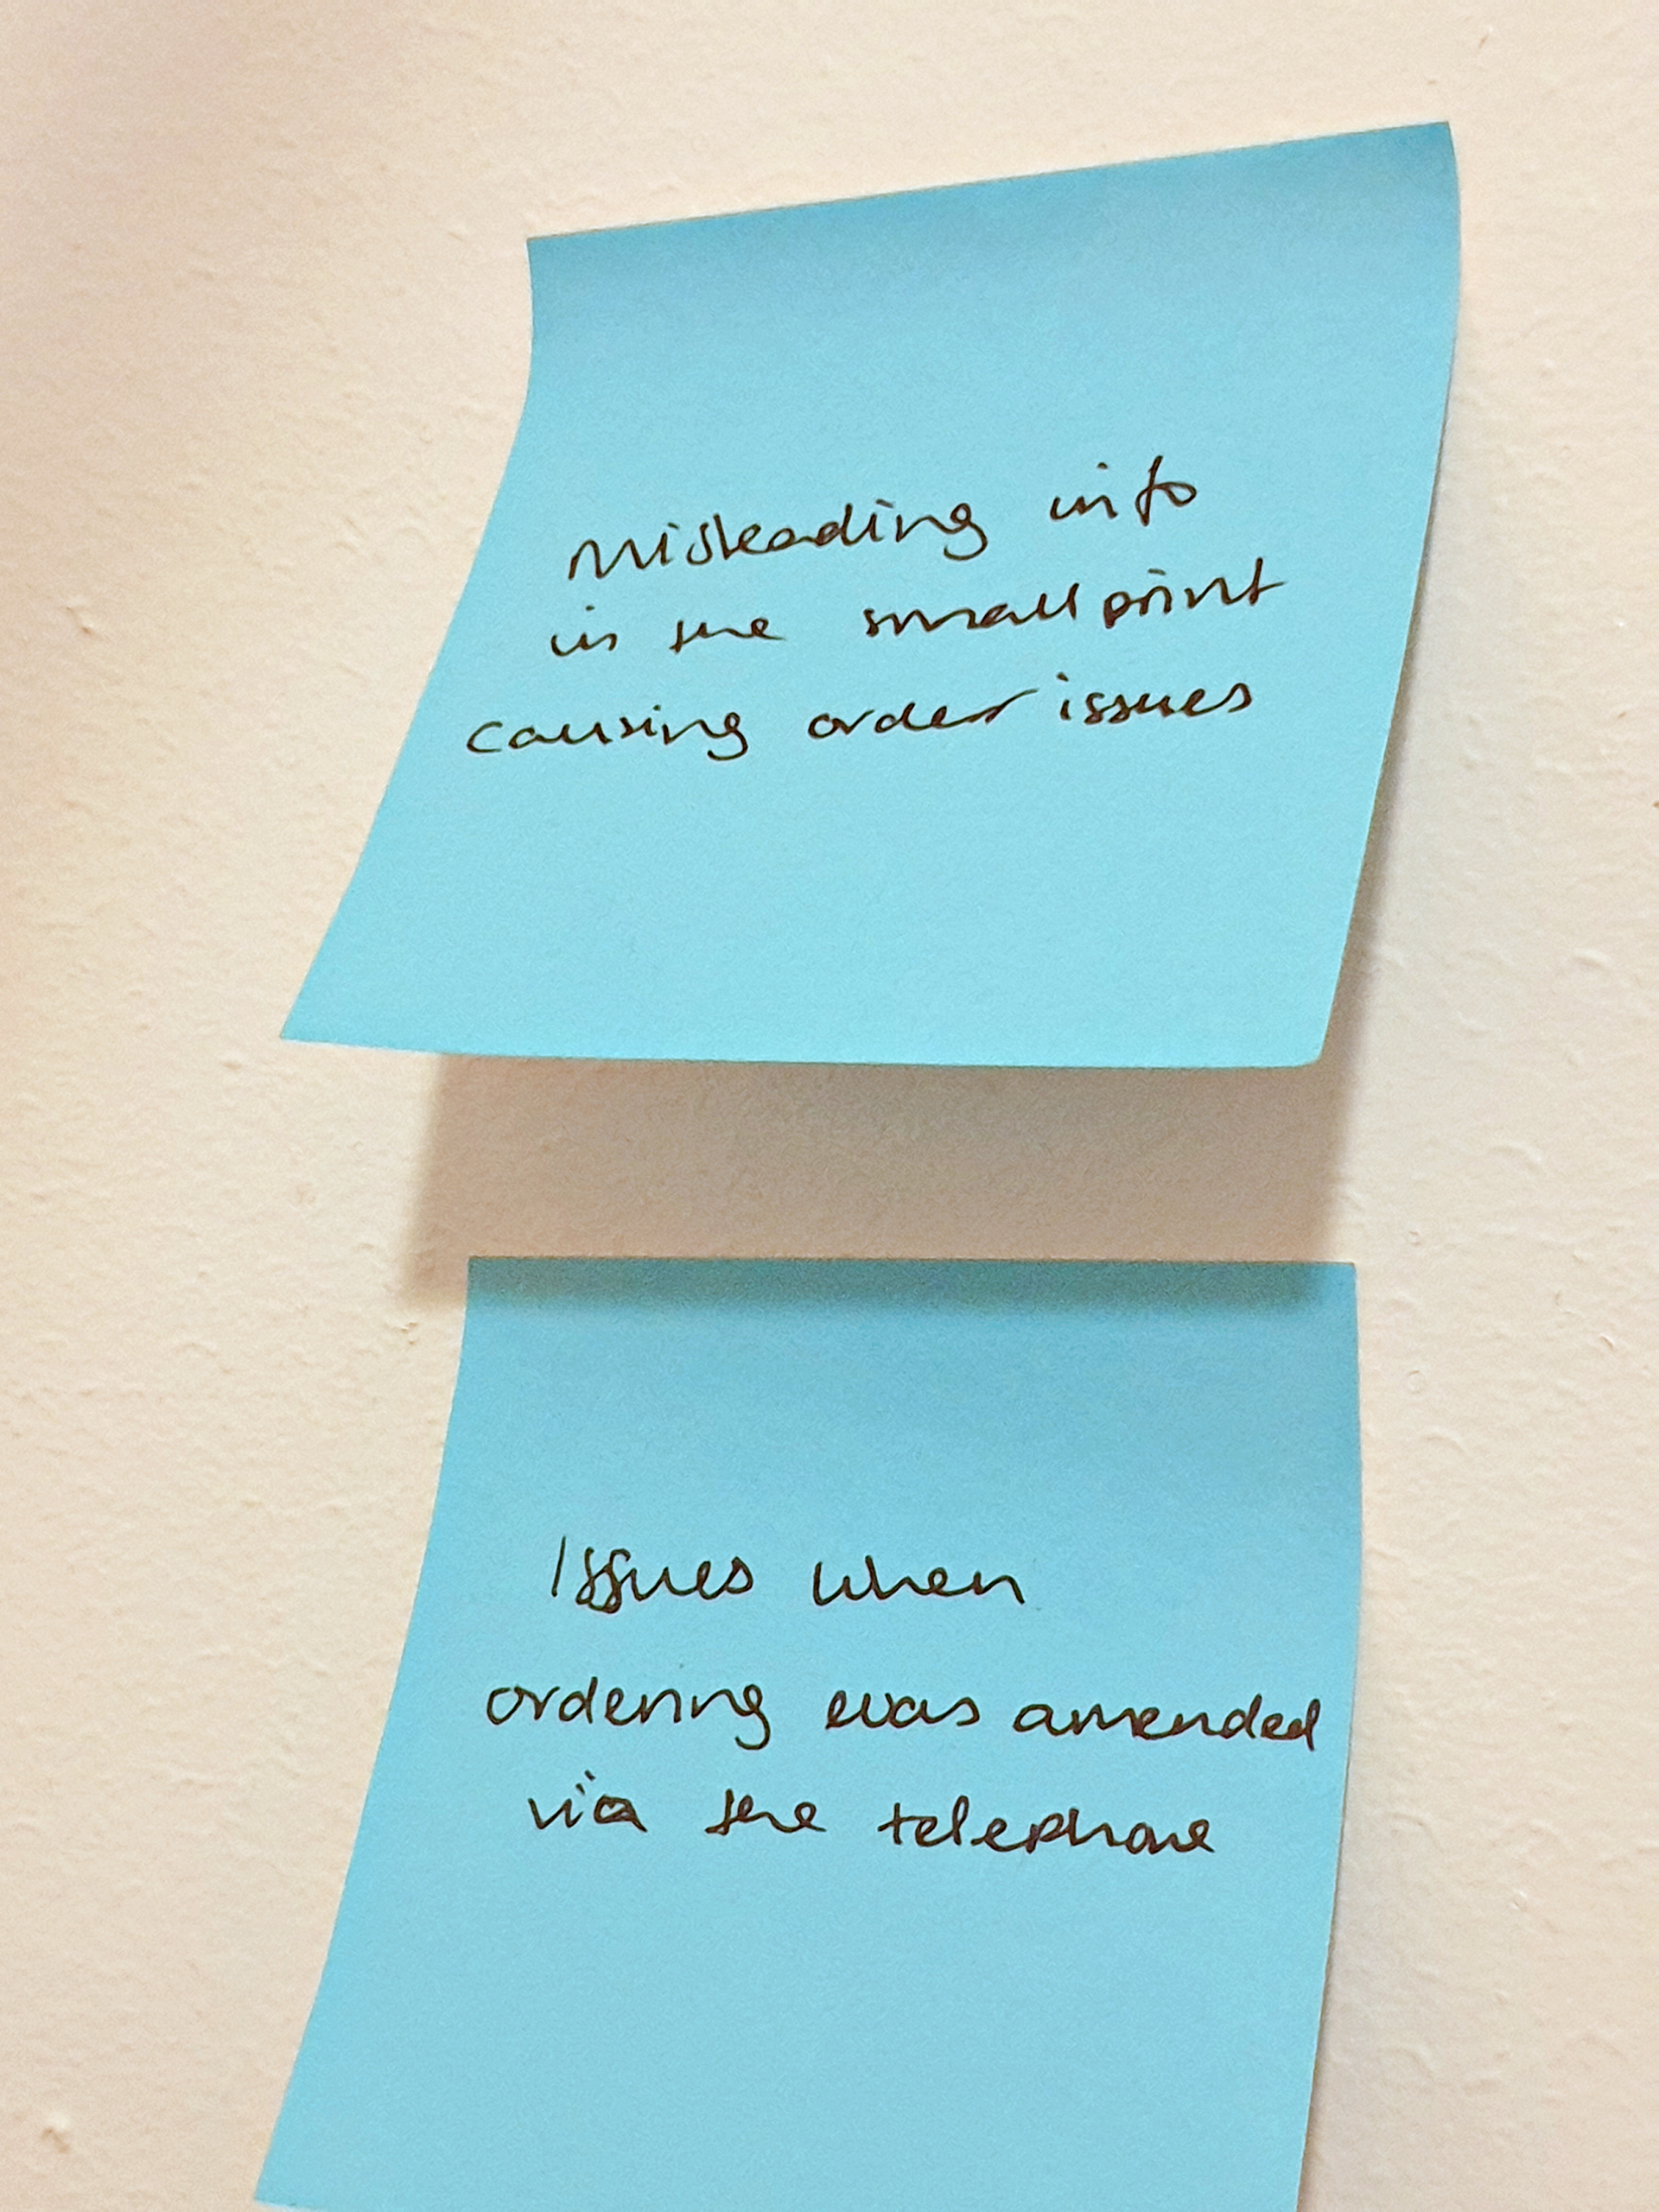 Misleading info
in the small print
causing order issues
Issues when
ordering was amended
via the telephone